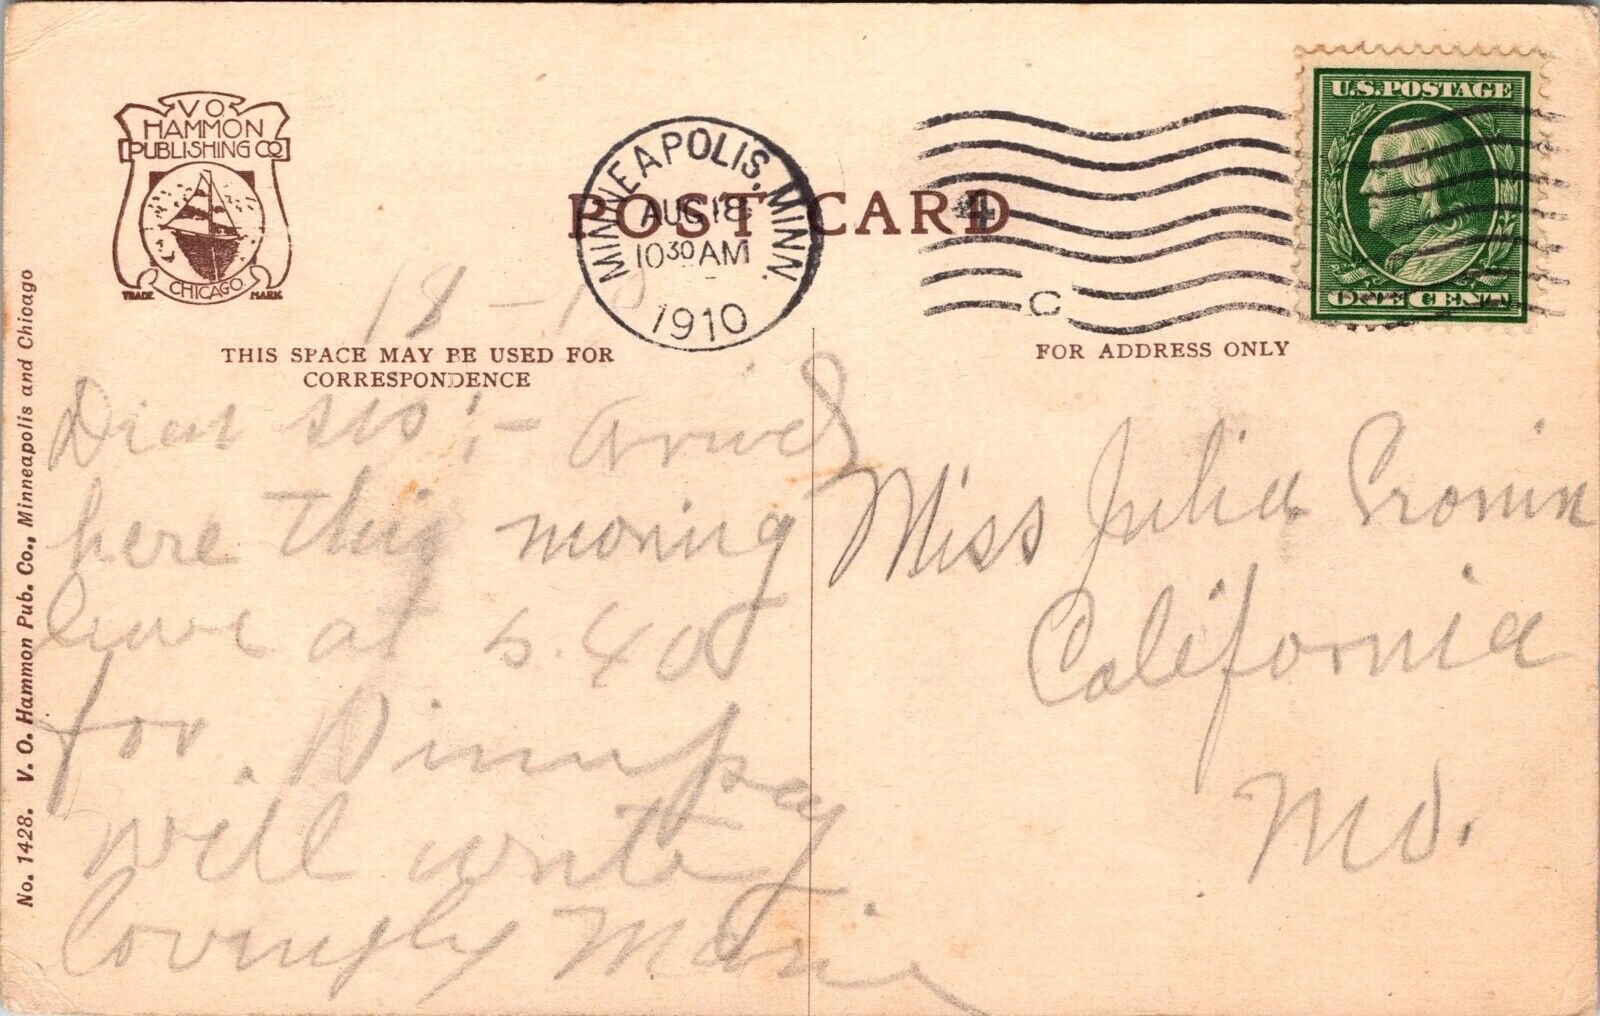 V.O.
HAMMON
PUBLISHING CO.
TRADE CHICAGO. MARK
POST CARD
MINNEAPOLIS, MINN.
AUG 18
10 30 AM
1910
C
U.S. POSTAGE
ONE CENT
THIS SPACE MAY BE USED FOR
CORRESPONDENCE
FOR ADDRESS ONLY
No. 1428. V. O. Hammon Pub. Co., Minneapolis and Chicago
18 - 10
Dear sis; - arived
here this morning
leave at 5.40
for
will write
lovingly Marie
Miss Julia Cronin
California
Md.